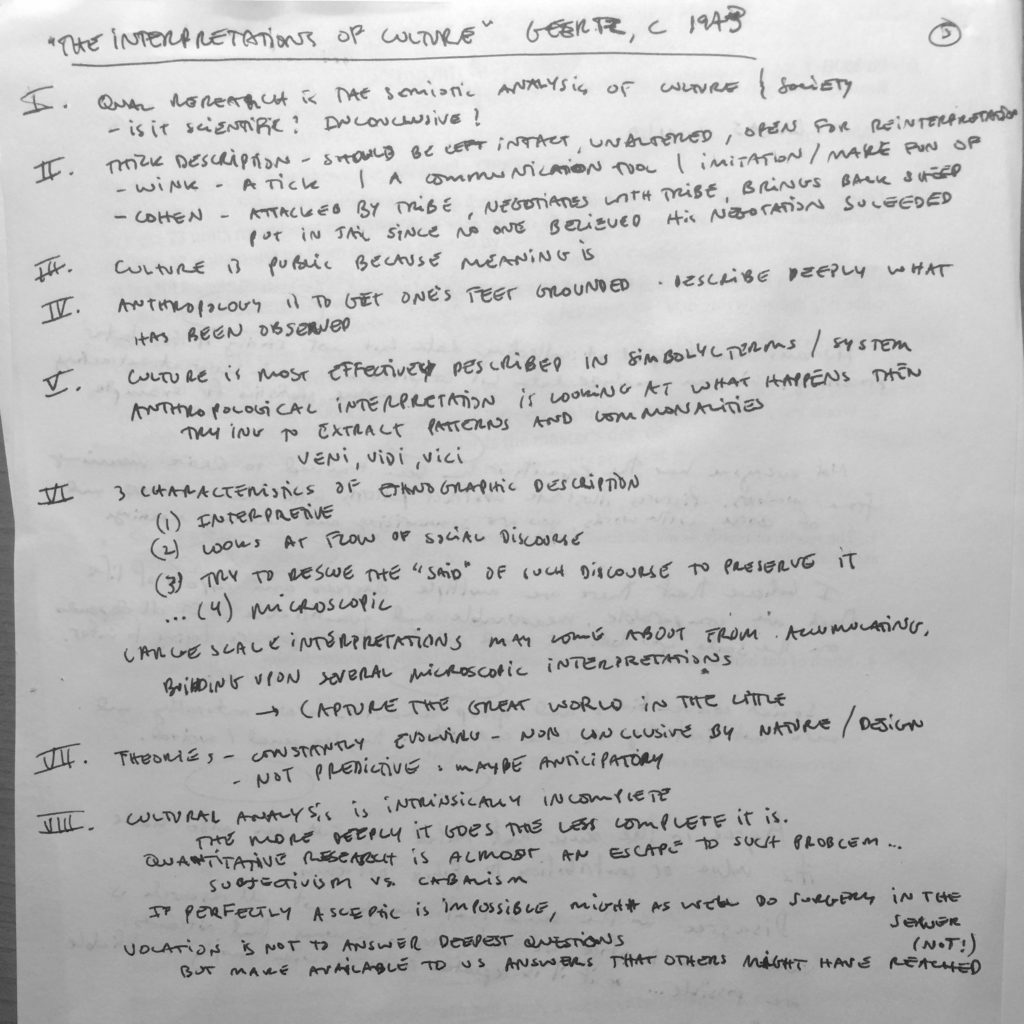 "THE INTERPRETATIONS OF CULTURE" GEERTZ, C 1973
5
I. QUAL RESEARCH IS THE SEMIOTIC ANALYSIS OF CULTURE & SOCIETY
- IS IT SCIENTIFIC? INCONCLUSIVE?
II. THICK DESCRIPTION - SHOULD BE LEFT INTACT, UNALTERED, OPEN FOR REINTERPRETATION
- WINK - A TICK | A COMMUNICATION TOOL | IMITATION / MAKE FUN OF
- COHEN - ATTACKED BY TRIBE, NEGOTIATES WITH TRIBE, BRINGS BACK SHEEP
PUT IN JAIL SINCE NO ONE BELIEVED HIS NEGOTATION SUCEEDED
III. CULTURE IS PUBLIC BECAUSE MEANING IS
IV. ANTHROPOLOGY IS TO GET ONE'S FEET GROUNDED . DESCRIBE DEEPLY WHAT
HAS BEEN OBSERVED
V. CULTURE IS MOST EFFECTIVELY DESCRIBED IN SIMBOLYC TERMS / SYSTEM
ANTHROPOLOGICAL INTERPRETATION IS LOOKING AT WHAT HAPPENS THEN
TRYING TO EXTRACT PATTERNS AND COMMONALITIES
VENI, VIDI, VICI
VI 3 CHARACTERISTICS OF ETHNOGRAPHIC DESCRIPTION
(1) INTERPRETIVE
(2) LOOKS AT FLOW OF SOCIAL DISCOURSE
(3) TRY TO RESCUE THE "SAID" OF SUCH DISCOURSE TO PRESERVE IT
... (4) MICROSCOPIC
LARGE SCALE INTERPRETATIONS MAY COME ABOUT FROM ACCUMULATING,
BUILDING UPON SEVERAL MICROSCOPIC INTERPRETATIONS
→ CAPTURE THE GREAT WORLD IN THE LITTLE
VII. THEORIES - CONSTANTLY EVOLVING - NON CONCLUSIVE BY NATURE / DESIGN
- NOT PREDICTIVE . MAYBE ANTICIPATORY
VIII. CULTURAL ANALYSIS IS INTRINSICALLY INCOMPLETE
THE MORE DEEPLY IT GOES THE LESS COMPLETE IT IS.
QUANTITATIVE RESEARCH IS ALMOST AN ESCAPE TO SUCH PROBLEM...
SUBJECTIVISM VS. CABALISM
IF PERFECTLY ASCEPTIC IS IMPOSSIBLE, MIGHT AS WELL DO SURGERY IN THE
SEWER
(NOT!)
VOCATION IS NOT TO ANSWER DEEPEST QUESTIONS
BUT MAKE AVAILABLE TO US ANSWERS THAT OTHERS MIGHT HAVE REACHED